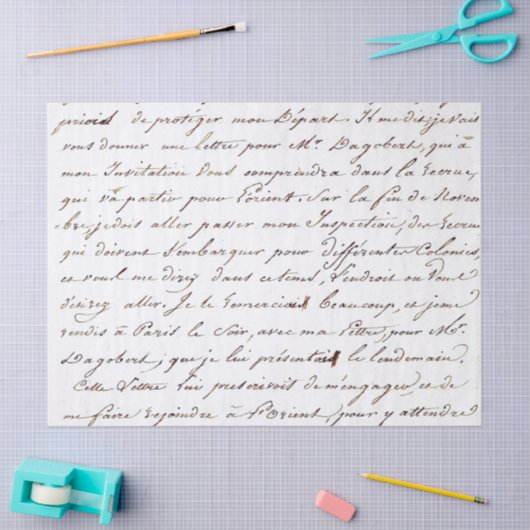 priois de protéger mon Départ. Il me dit, je vais
vous donner une lettre pour Mr. Dagobert, qui à
mon Invitation Vous comprendra dans la Recrue,
qui va partir pour l'orient. Sur la fin de Novem
=bre, je dois aller passer mon Inspection, des Recrues
qui doivent s'embarquer pour différentes Colonies,
et vous me direz dans ce tems, l'endroit ou Vous
désirez aller. Je le remerciais beaucoup, et je me
rendis à Paris le Soir, avec ma Lettre, pour Mr.
Dagobert; que je lui présentois le lendemain.
Cette Lettre lui prescrivois de m'engager, et de
me faire rejoindre à l'Orient, pour y attendre